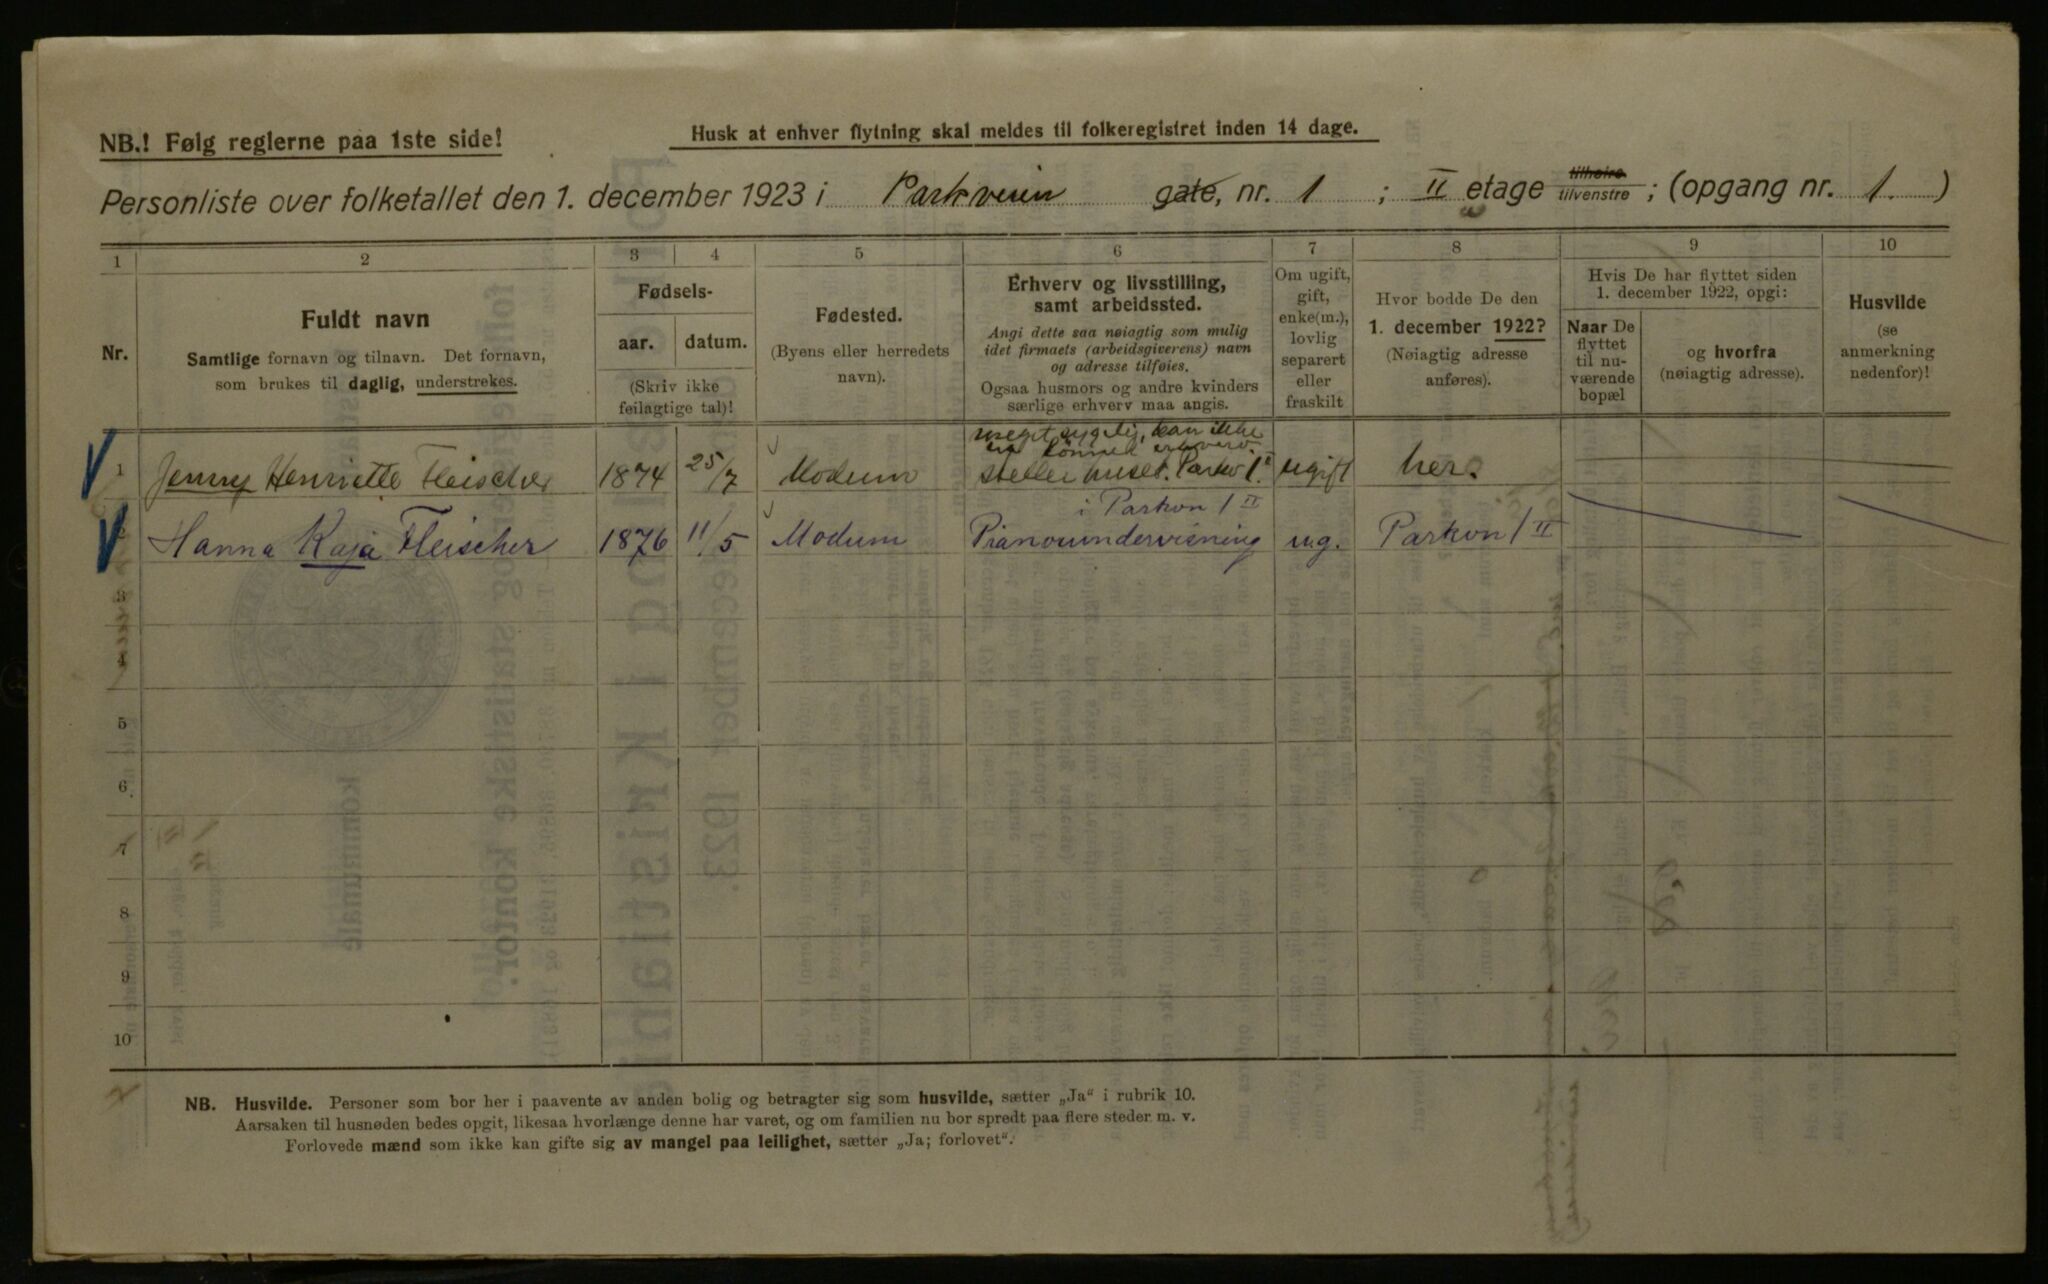 NB.! Følg reglerne paa 1ste side!
Husk at enhver flytning skal meldes til folkeregistret inden 14 dage.
Personliste over folketallet den 1. december 1923 i Parkveien gate, nr. 1 ; II etage tilhøire tilvenstre ; (opgang nr. 1. )
1 2 3 4 5 6 7 8 9 10
Nr.
Fuldt navn
Samtlige fornavn og tilnavn. Det fornavn,
som brukes til daglig, understrekes.
Fødsels-
aar. datum.
(Skriv ikke
feilagtige tal)!
Fødested.
(Byens eller herredets
navn).
Erhverv og livsstilling,
samt arbeidssted.
Angi dette saa nøiagtig som mulig
idet firmaets (arbeidsgiverens) navn
og adresse tilføies.
Ogsaa husmors og andre kvinders
særlige erhverv maa angis.
Om ugift,
gift,
enke(m.),
lovlig
separert
eller
fraskilt
Hvor bodde De den
1. december 1922?
(Nøiagtig adresse
anføres).
Hvis De har flyttet siden
1. december 1922, opgi:
Naar De
flyttet
til nu-
værende
bopæl
og hvorfra
(nøiagtig adresse).
Husvilde
(se
anmerkning
nedenfor)!
meget sygelig, kan ikke
erhverv.
1 Jenny Henriette Fleischer 1874 25/7 Modum steller huset. Parkv 1 II ugift her.
i Parkvn 1 II
2 Hanna Kaja Fleischer 1876 11/5 Modum Pianoundervisning ug. Parkvn 1 II
3
4
5
6
7
8
9
10
NB. Husvilde. Personer som bor her i paavente av anden bolig og betragter sig som husvilde, sætter „Ja“ i rubrik 10.
Aarsaken til husnøden bedes opgit, likesaa hvorlænge denne har varet, og om familien nu bor spredt paa flere steder m. v.
Forlovede mænd som ikke kan gifte sig av mangel paa leilighet, sætter „Ja; forlovet“.